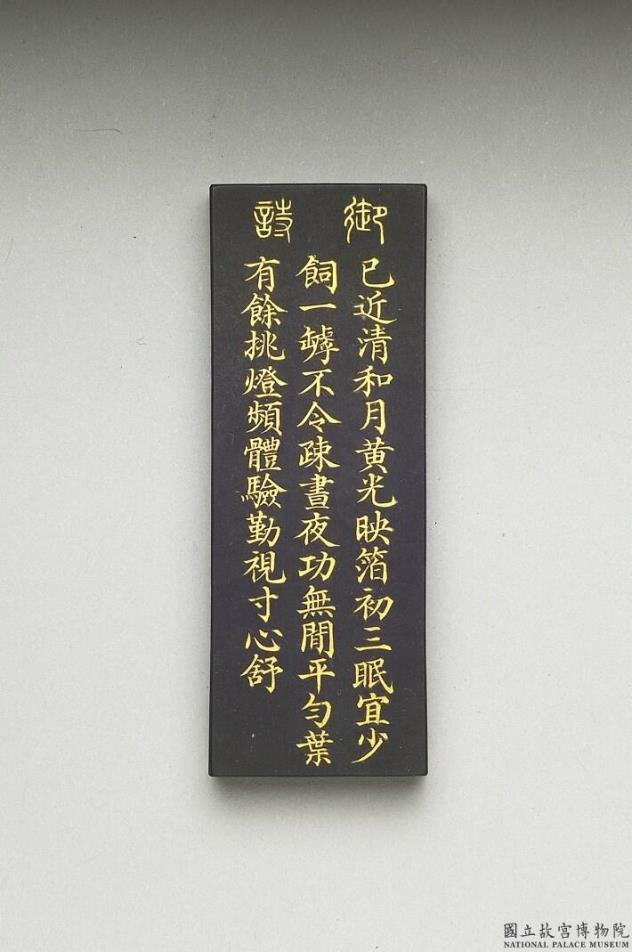 御詩
已近清和月黄光映箔初三眠宜少
飼一罅不令疎晝夜功無閒平勻葉
有餘挑燈頻體驗勤視寸心舒
國立故宮博物院
NATIONAL PALACE MUSEUM